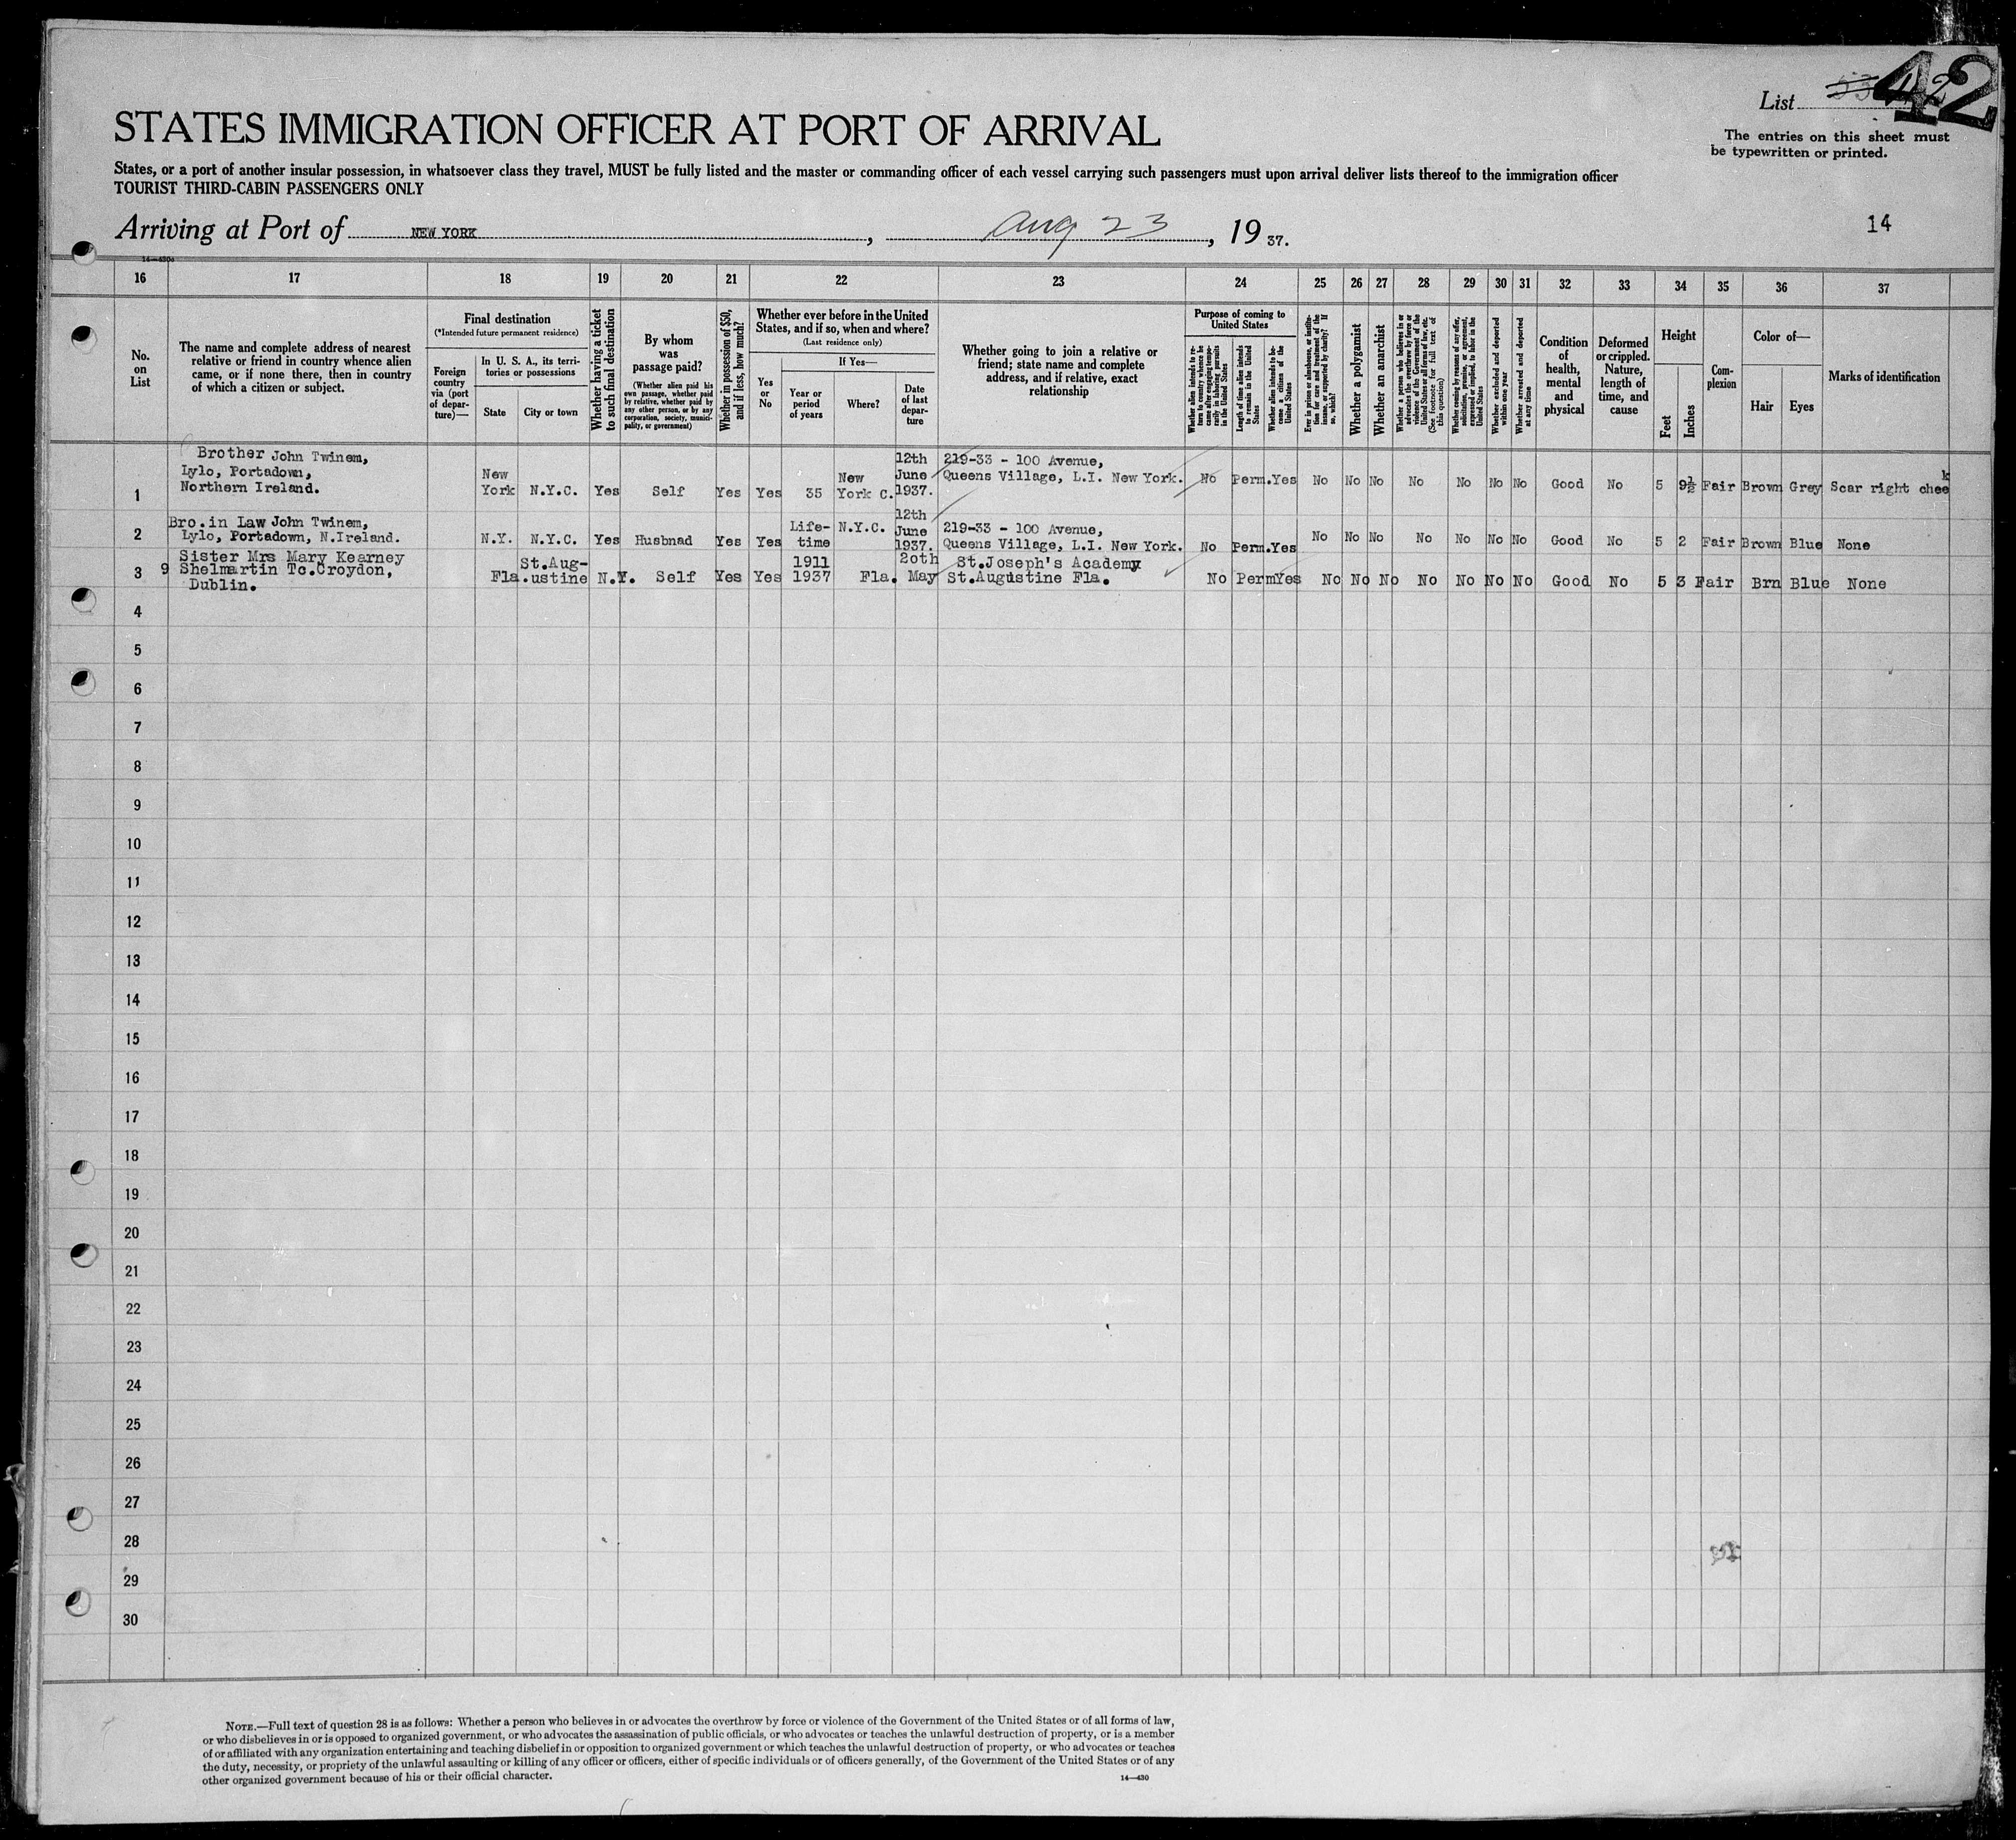 List 42
STATES IMMIGRATION OFFICER AT PORT OF ARRIVAL
The entries on this sheet must
be typewritten or printed.
States, or a port of another insular possession, in whatsoever class they travel, MUST be fully listed and the master or commanding officer of each vessel carrying such passengers must upon arrival deliver lists thereof to the immigration officer
TOURIST THIRD-CABIN PASSENGERS ONLY
Arriving at Port of NEW YORK, Aug 23, 19 37.
14
16 17 18 19 20 21 22 23 24 25 26 27 28 29 30 31 32 33 34 35 36 37
No.
on
List
The name and complete address of nearest
relative or friend in country whence alien
came, or if none there, then in country
of which a citizen or subject.
Final destination
(*Intended future permanent residence)
Foreign
country
via (port
of depar-
ture)—
In U. S. A., its terri-
tories or possessions
State
City or town
Whether having a ticket
to such final destination
By whom
was
passage paid?
(Whether alien paid his
own passage, whether paid
by relative, whether paid by
any other person, or by any
corporation, society, munici-
pality, or government)
Whether in possession of $50,
and if less, how much?
Whether ever before in the United
States, and if so, when and where?
(Last residence only)
Yes
or
No
If Yes—
Year or
period
of years
Where?
Date
of last
depar-
ture
Whether going to join a relative or
friend; state name and complete
address, and if relative, exact
relationship
Purpose of coming to
United States
Whether alien intends to re-
turn to country whence he
came after engaging tempo-
rarily in laboring pursuits
in the United States
Length of time alien intends
to remain in the United
States
Whether alien intends to be-
come a citizen of the
United States
Ever in prison or almshouse, or institu-
tion for care and treatment of the
insane, or supported by charity? If
so, which?
Whether a polygamist
Whether an anarchist
Whether a person who believes in or
advocates the overthrow by force or
violence of the Government of the
United States or all forms of law, etc.
(See footnote for full text of
this question)
Whether coming by reason of any offer,
solicitation, promise, or agreement,
expressed or implied, to labor in the
United States
Whether excluded and deported
within one year
Whether arrested and deported
at any time
Condition
of
health,
mental
and
physical
Deformed
or crippled.
Nature,
length of
time, and
cause
Height
Feet
Inches
Com-
plexion
Color of—
Hair
Eyes
Marks of identification
Brother John Twinem,
Lylo, Portadown,
Northern Ireland.
1 New York N.Y.C. Yes Self Yes Yes 35 New York C. 12th June 1937. 219-33 - 100 Avenue, Queens Village, L.I. New York. No Perm. Yes No No No No No No No Good No 5 9½ Fair Brown Grey Scar right cheek
Bro.in Law John Twinem,
Lylo, Portadown, N.Ireland.
2 N.Y. N.Y.C. Yes Husbnad Yes Yes Life-time N.Y.C. 12th June 1937. 219-33 - 100 Avenue, Queens Village, L.I. New York. No Perm. Yes No No No No No No No Good No 5 2 Fair Brown Blue None
Sister Mrs Mary Kearney
9 Shelmartin Tc.Croydon,
Dublin.
3 Fla. St.Aug-ustine N.Y. Self Yes Yes 1911 1937 Fla. 20th May St.Joseph's Academy St.Augustine Fla. No Perm Yes No No No No No No No Good No 5 3 Fair Brn Blue None
4
5
6
7
8
9
10
11
12
13
14
15
16
17
18
19
20
21
22
23
24
25
26
27
28
29
30
NOTE.—Full text of question 28 is as follows: Whether a person who believes in or advocates the overthrow by force or violence of the Government of the United States or of all forms of law,
or who disbelieves in or is opposed to organized government, or who advocates the assassination of public officials, or who advocates or teaches the unlawful destruction of property, or is a member
of or affiliated with any organization entertaining and teaching disbelief in or opposition to organized government or which teaches the unlawful destruction of property, or who advocates or teaches
the duty, necessity, or propriety of the unlawful assaulting or killing of any officer or officers, either of specific individuals or of officers generally, of the Government of the United States or of any
other organized government because of his or their official character.
14—430